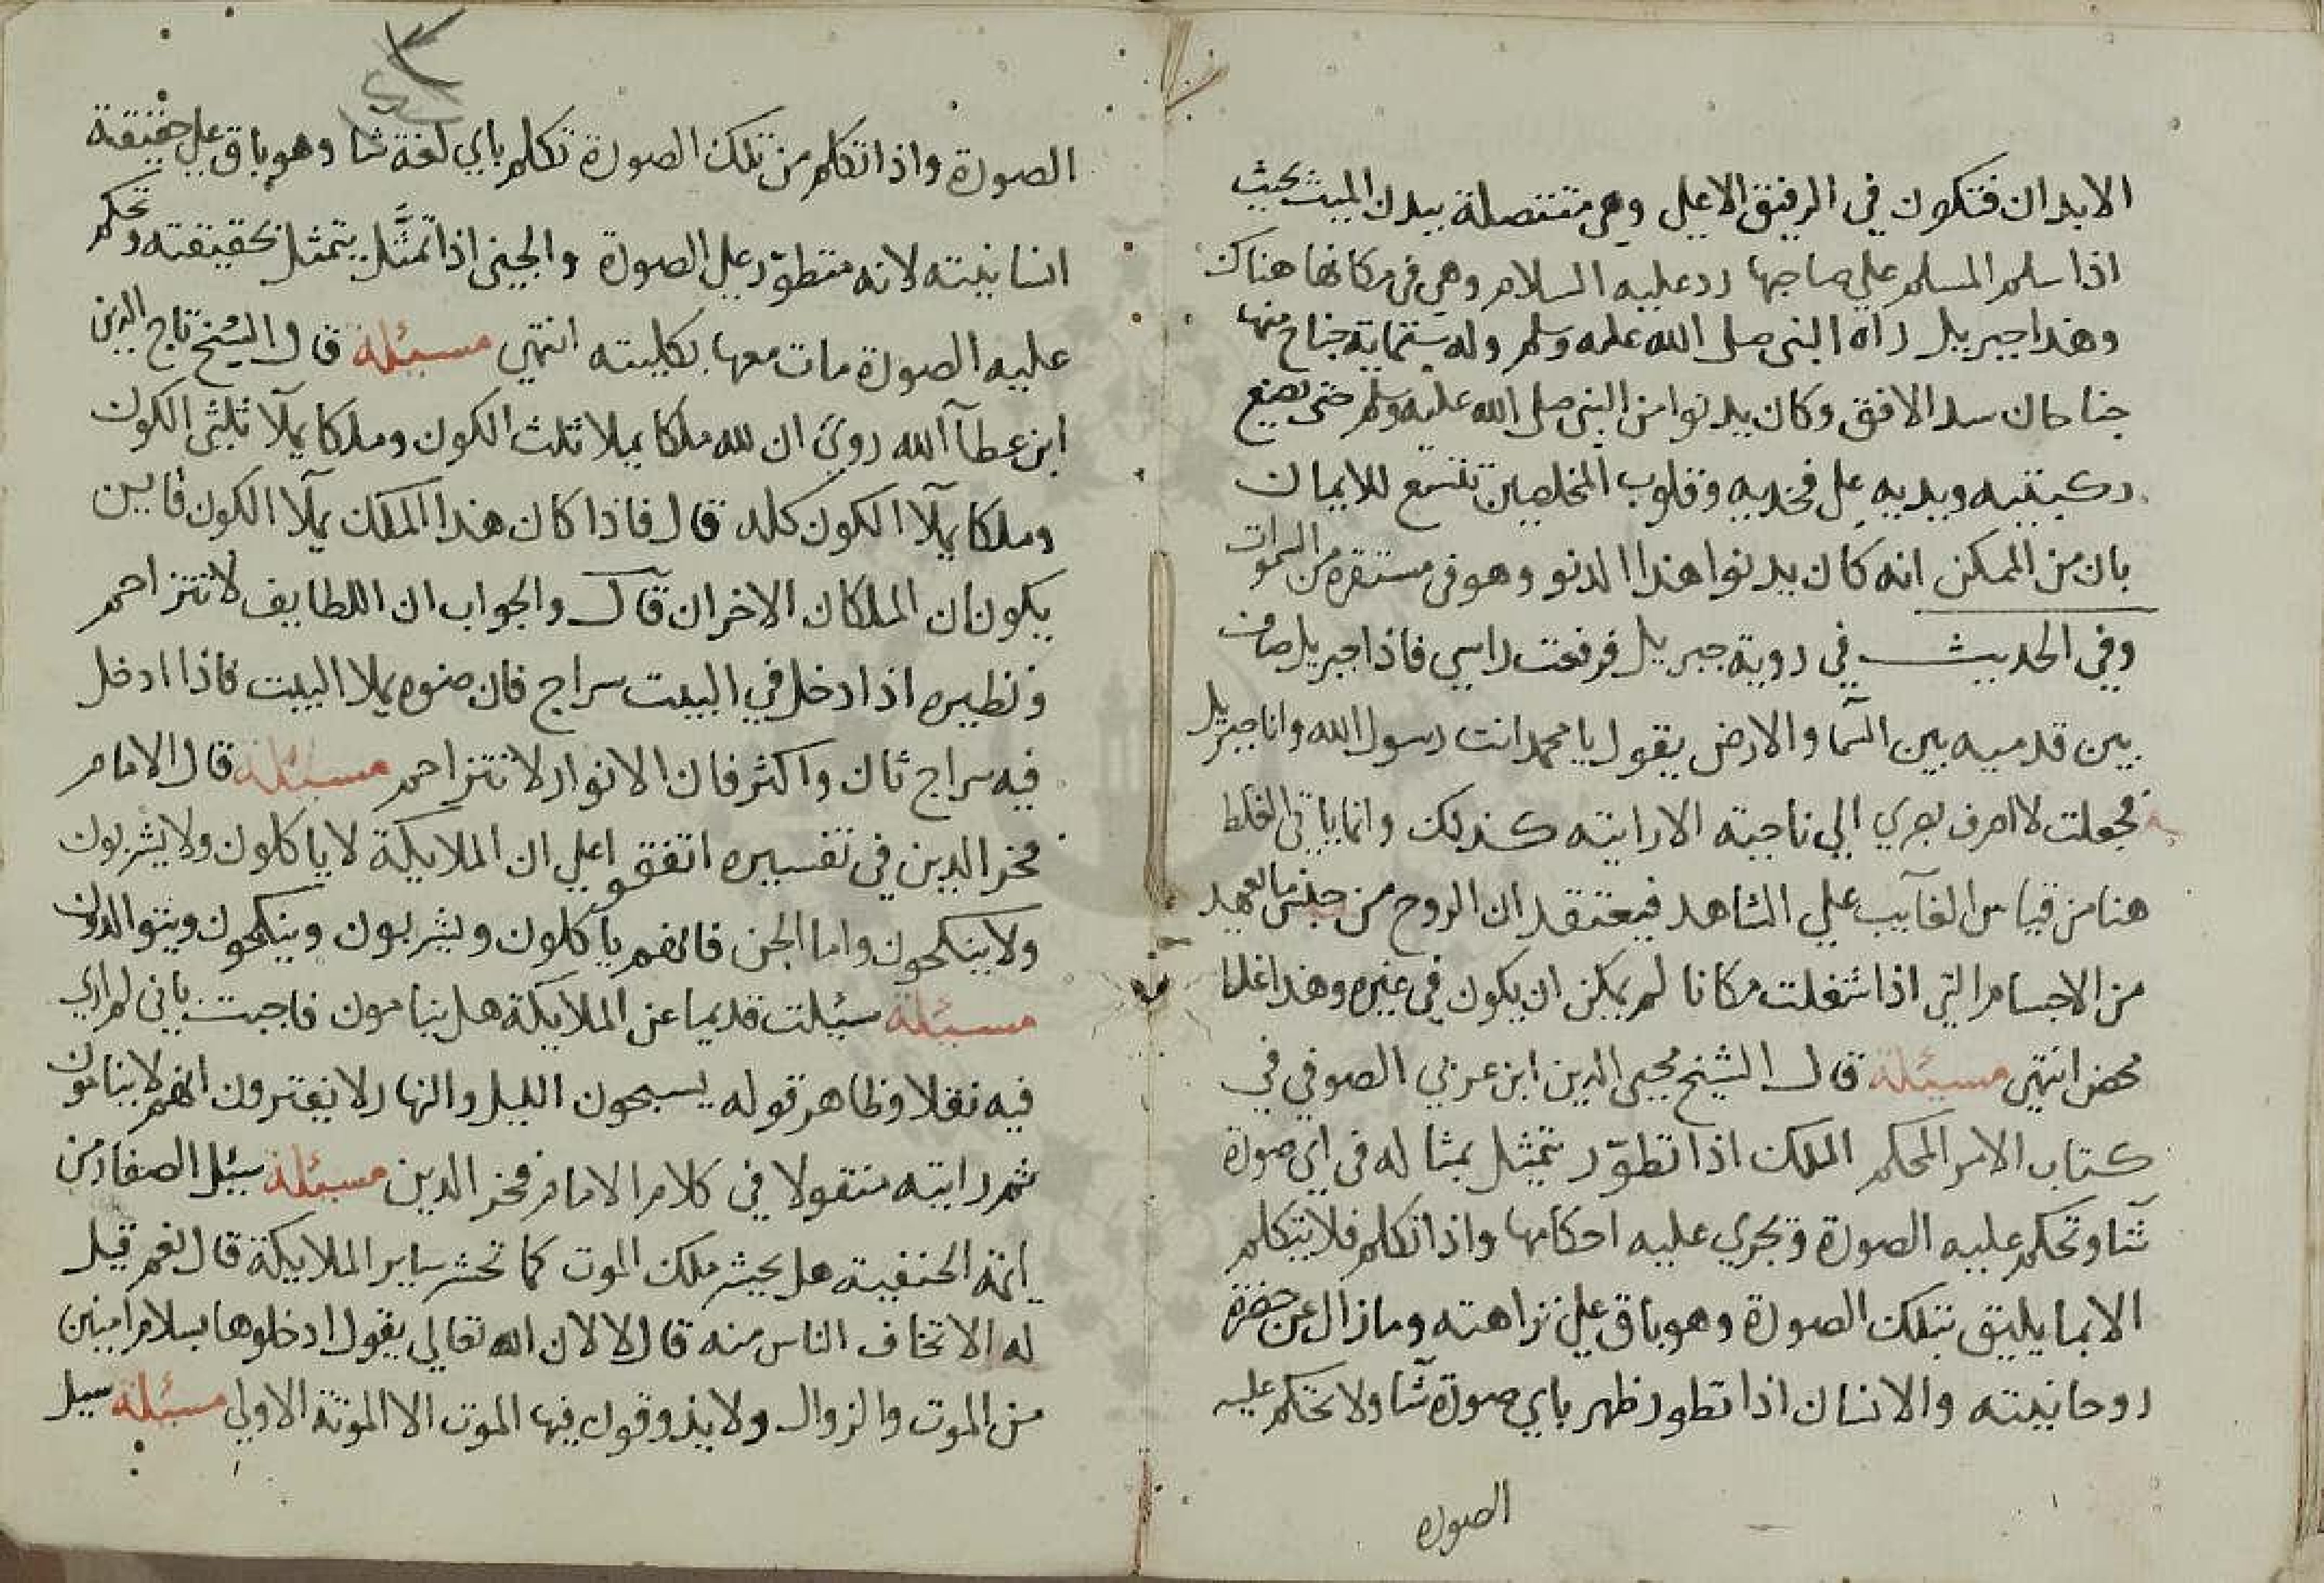 الابدان فتكون في الرفيق الاعلي وهي متصلة ببدن الميت بحيث
اذا سلم المسلم علي صاحبها رد عليه السلام وهي في مكانها هناك
وهذا جبريل راه النبي صلي الله عليه وسلم وله ستماية جناح منها
جناحان سد الافق وكان يدنوا من النبي صلي الله عليه وسلم حتي يضع
ركبتيه ويديه علي فخديه وقلوب المخلصين تتسع للايمان
بان من الممكن انه كان يدنوا هذا الدنو وهو في مستقره من السموات
وفي الحديث في روية جبريل فرفعت راسي فاذا جبريل صاف
بين قدميه بين السما والارض يقول يا محمد انت رسول الله وانا جبريل
فجعلت لا اصرف بصري الي ناحية الا رايته كذلك وانما ياتي الغلط
هنا من قياس الغآيب علي الشاهد فيعتقد ان الروح من جنس ما يعهد
من الاجسام التي اذا شغلت مكانا لم يمكن ان يكون في غيره وهذا غلط
محض انتهي مسئلة قال الشيخ محيي الدين ابن عربي الصوفي في
كتاب الامر المحكم الملك اذا تطوّر يتمثل بمثاله في اي صورة
شآ وتحكم عليه الصورة وتجري عليه احكامها واذا تكلم فلا يتكلم
الا بما يليق بتلك الصورة وهو باق علي نزاهته وما زال عن حضرة
روحانيته والانسان اذا تطور ظهر باي صورة شآ ولا تحكم عليه
الصورة
الصورة واذا تكلم من تلك الصورة تكلم باي لغة شا وهو باق علي حقيقة
انسانيته لانه متطوّر علي الصورة والجني اذا تمثَّل يتمثل بحقيقته وتحكم
عليه الصورة مات معها بكليته انتهي مسئلة قال الشيخ تاج الدين
ابن عطآ الله روي ان لله ملكا يملا ثلث الكون وملكا يملآ ثلثي الكون
وملكا يملآ الكون كله قال فاذا كان هذا الملك يملآ الكون فاين
يكونان الملكان الاخران قال والجواب ان اللطايف لا تتزاحم
ونظيره اذا دخل في البيت سراج فان ضوه يملا البيت فاذا ادخل
فيه سراج ثان واكثر فان الانوار لا تتزاحم مسئلة قال الامام
فخر الدين في تفسيره اتفقوا علي ان الملايكة لا ياكلون ولا يشربون
ولا ينكحون واما الجن فانهم ياكلون ويشربون وينكحون ويتوالدون
مسئلة سئلت قديما عن الملايكة هل ينامون فاجبت باني لم ارى
فيه نقلا وظاهر قوله يسبحون الليل والنهار لا يفترون انهم لا ينامون
ثم رايته منقولا في كلام الامام فخر الدين مسئلة سئل الصفار من
ائمة الحنفية هل يحشر ملك الموت كما تحشر ساير الملايكة قال نعم قيل
له الا تخاف الناس منه قال لا لان الله تعالي يقول ادخلوها بسلام امنين
من الموت والزوال ولا يذوقون فيها الموت الا الموتة الاولي مسئلة سيل